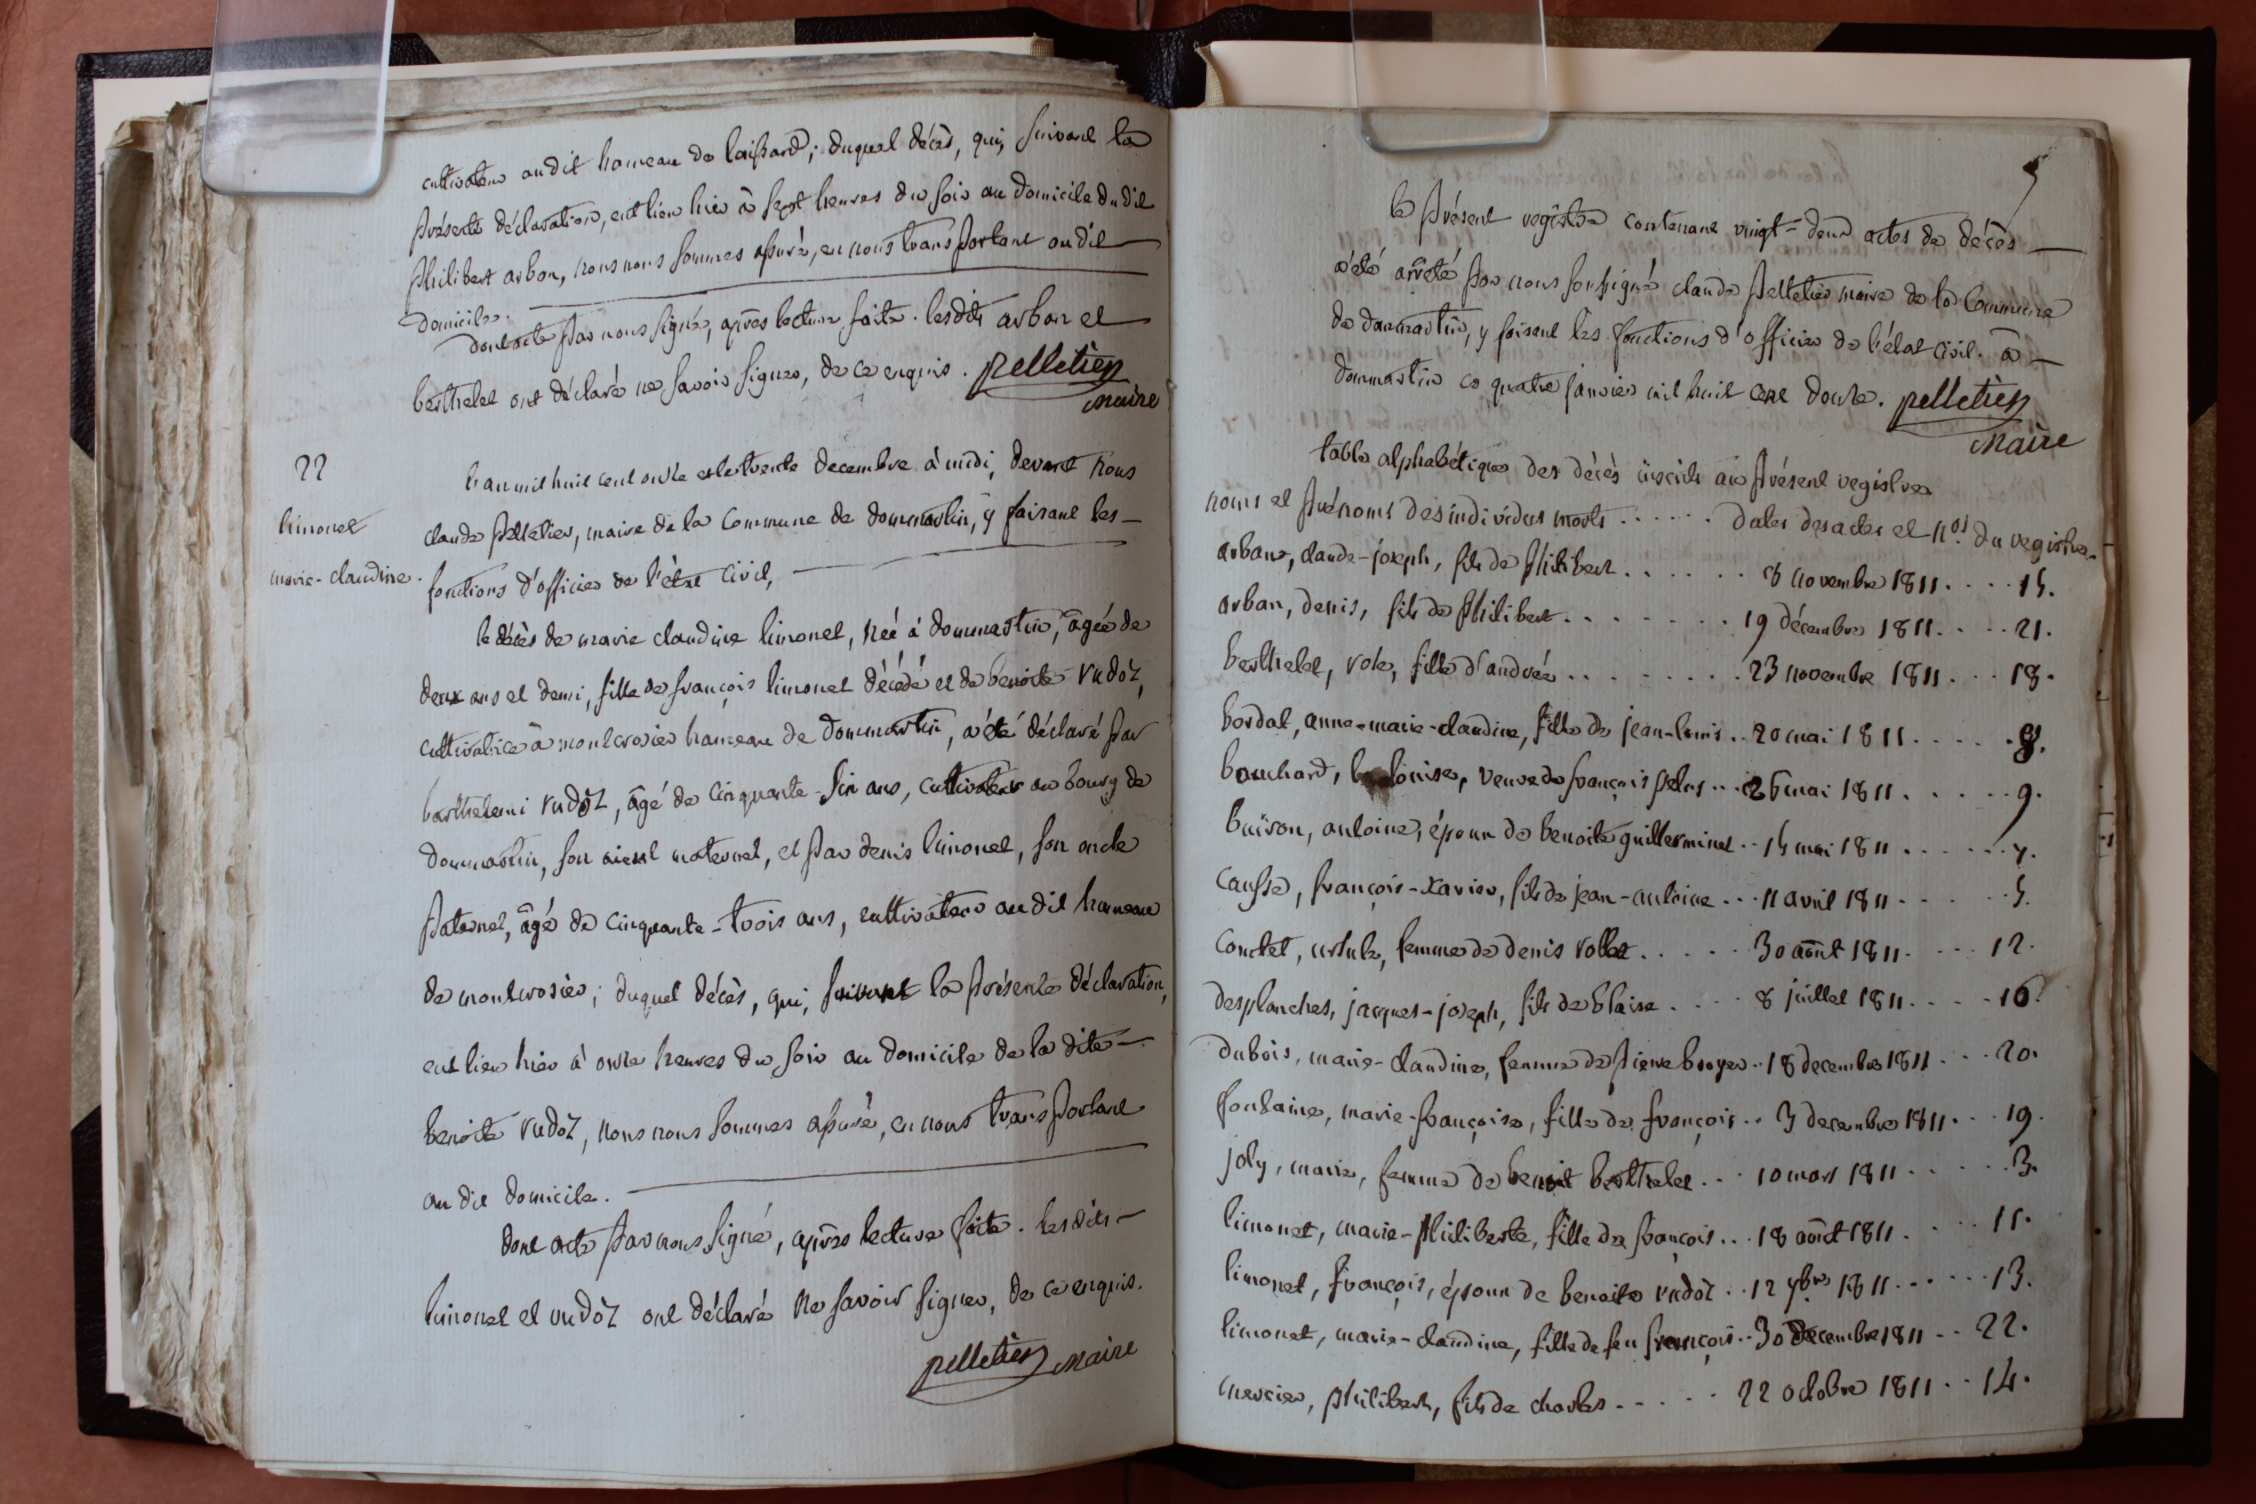 cultivateur au dit hameau de laissard; duquel décès, qui, suivant la
présente déclaration, eut lieu hier à sept heures du soir au domicile du dit
philibert arban, nous nous sommes assuré, en nous transportant au dit
domicile.
dont acte par nous signé, après lecture faite. lesdits arban et
berthelet ont déclaré ne savoir signer, de ce enquis. pelletier
maire
22
limonet
marie-claudine.
l'an mil huit cent onze et le trente decembre à midi, devant nous
claude pelletier, maire de la commune de dommartin, y faisant les
fonctions d'officier de l'état civil,
le décès de marie claudine limonet, née à dommartin, âgée de
deux ans et demi, fille de françois limonet décédé et de benoite rudoz,
cultivatrice à montcrosier hameau de dommartin, a été déclaré par
barthelemi rudoz, âgé de cinquante-six ans, cultivateur au bourg de
dommartin, son aieul maternel, et par denis limonet, son oncle
paternel, âgé de cinquante-trois ans, cultivateur au dit hameau
de montcrosier; duquel décès, qui, suivant la présente déclaration,
eut lieu hier à onze heures du soir au domicile de la dite
benoite rudoz, nous nous sommes assuré, en nous transportant
au dit domicile.
dont acte par nous signé, après lecture faite. lesdits
limonet et rudoz ont déclaré ne savoir signer, de ce enquis.
pelletier maire
le présent registre contenant vingt-deux actes de décès
a été arrêté par nous soussigné claude pelletier maire de la commune
de dommartin, y faisant les fonctions d'officier de l'état civil. à
dommartin ce quatre janvier mil huit cent douze. pelletier
maire
table alphabétique des décès inscrits au présent registre
noms et prénoms des individus morts ..... dates des actes et nos. du registre.
arban, claude-joseph, fils de philibert ...... 8 novembre 1811 .... 15.
arban, denis, fils de philibert ....... 19 décembre 1811 .... 21.
berthelet, role, fille d'andrée ........ 23 novembre 1811 ... 18.
bordat, anne-marie-claudine, fille de jean-louis .. 20 mai 1811 ..... 8.
bouchard, louise, veuve de françois ... 26 mai 1811 ..... 9.
buiron, antoine, époux de benoite guillerminet .. 15 mai 1811 ...... 7.
causse, françois-xavier, fils de jean-antoine ... 11 avril 1811 ..... 5.
coudet, ursule, femme de denis rollet ..... 30 août 1811 .... 12.
desplanches, jacques-joseph, fils de blaise .... 8 juillet 1811 .... 10.
dubois, marie-claudine, femme de pierre broyer .. 18 decembre 1811 ... 20.
fontaine, marie-françoise, fille de françois .. 3 decembre 1811 ... 19.
joly, marie, femme de benoit berthelet ... 10 mars 1811 ..... 3.
limonet, marie-philiberte, fille de françois ... 18 août 1811 .... 11.
limonet, françois, époux de benoite rudoz .. 12 7bre 1811 ...... 13.
limonet, marie-claudine, fille de feu françois .. 30 decembre 1811 .. 22.
mercier, philibert, fils de charles ..... 22 octobre 1811 .. 14.